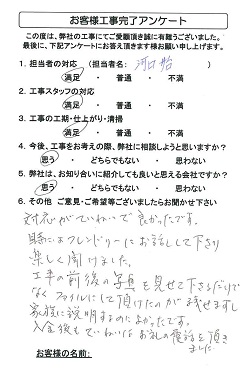 お客様工事完了アンケート
この度は、弊社の工事にてご愛顧頂き誠に有難うございました。
最後に、下記アンケートにお答え頂きます様お願い申し上げます。
1. 担当者の対応 (担当者名: 河口 )
満足 ・ 普通 ・ 不満
2. 工事スタッフの対応
満足 ・ 普通 ・ 不満
3. 工事の工期・仕上がり・清掃
満足 ・ 普通 ・ 不満
4. 今後、工事をお考えの際、弊社に相談しようと思いますか?
思う ・ どちらでもない ・ 思わない
5. 弊社は、お知り合いに紹介しても良いと思える会社ですか?
思う ・ どちらでもない ・ 思わない
6. その他 ご意見・ご希望等ございましたらお聞かせ下さい
対応がていねいで良かったです。
にフレンドリーにお話しして下さり
楽しく聞けました。
工事の前後の写真を見せて下さるだけで
なくファイルにして頂けたのが残せますし
家族に説明するのによかったです。
入金後もていねいなお礼の電話を頂き
ました
お客様の名前: